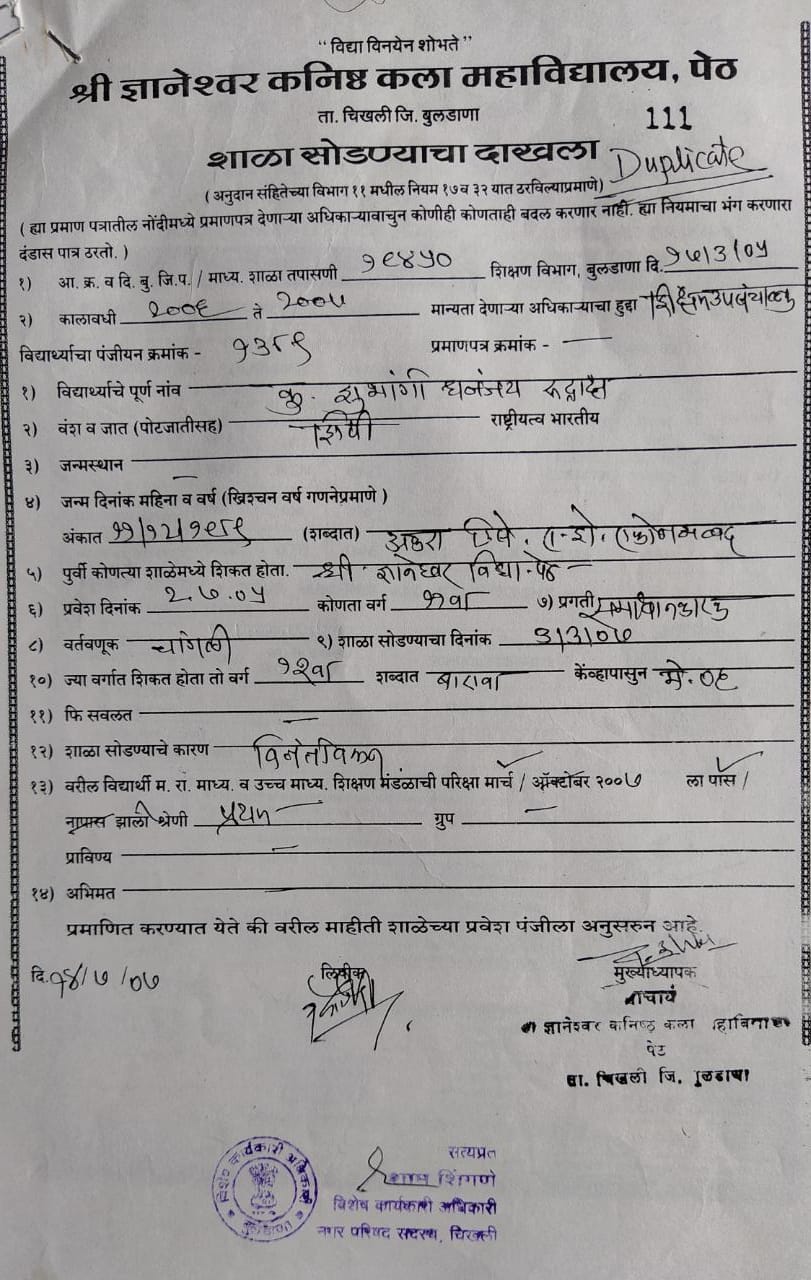 “ विद्या विनयेन शोभते ”
श्री ज्ञानेश्वर कनिष्ठ कला महाविद्यालय, पेठ
ता. चिखली जि. बुलडाणा
111
शाळा सोडण्याचा दाखला Duplicate
( अनुदान संहितेच्या विभाग ११ मधील नियम १७ व ३२ यात ठरविल्याप्रमाणे)
( ह्या प्रमाण पत्रातील नोंदीमध्ये प्रमाणपत्र देणाऱ्या अधिकाऱ्यावाचुन कोणीही कोणताही बदल करणार नाही. ह्या नियमाचा भंग करणारा
दंडास पात्र ठरतो. )
१) आ. क्र. व दि. बु. जि.प. / माध्य. शाळा तपासणी १८४५० शिक्षण विभाग, बुलडाणा दि. १७/३/०५
२) कालावधी २००६ ते २००७ मान्यता देणाऱ्या अधिकाऱ्याचा हुद्दा शिक्षण उपसंचालक
विद्यार्थ्याचा पंजीयन क्रमांक - १३८९ प्रमाणपत्र क्रमांक - —
१) विद्यार्थ्याचे पूर्ण नांव कु. शुभांगी धनंजय
२) वंश व जात (पोटजातीसह) राष्ट्रीयत्व भारतीय
३) जन्मस्थान —
४) जन्म दिनांक महिना व वर्ष (ख्रिश्चन वर्ष गणनेप्रमाणे )
अंकात ११/१२/१९८९ (शब्दात) अकरा डिसें. ए-शे. एकोनवब्द
५) पुर्वी कोणत्या शाळेमध्ये शिकत होता. श्री. ज्ञानेश्वर विद्या. पेठ
६) प्रवेश दिनांक २.७.०५ कोणता वर्ग ११वी ७) प्रगती समाधानकारक
८) वर्तवणूक चांगली ९) शाळा सोडण्याचा दिनांक ३/३/०७
१०) ज्या वर्गात शिकत होता तो वर्ग १२वी शब्दात बारावी केंव्हापासुन मे. ०६
११) फि सवलत —
१२) शाळा सोडण्याचे कारण विनंतीवरून
१३) वरील विद्यार्थी म. रा. माध्य. व उच्च माध्य. शिक्षण मंडळाची परिक्षा मार्च / ऑक्टोंबर २००७ ला पास /
नापास झाली श्रेणी प्रथम ग्रुप —
प्राविण्य —
१४) अभिमत
प्रमाणित करण्यात येते की वरील माहीती शाळेच्या प्रवेश पंजीला अनुसरुन आहे.
दि. १४/७/०७ लिपीक मुख्याध्यापक
प्राचार्य
श्री ज्ञानेश्वर कनिष्ठ कला महाविद्यालय
पेठ
ता. चिखली जि. बुलडाणा
सत्यप्रत
शिंगणे
विशेष कार्यकारी अधिकारी
नगर परिषद सदस्य, चिखली